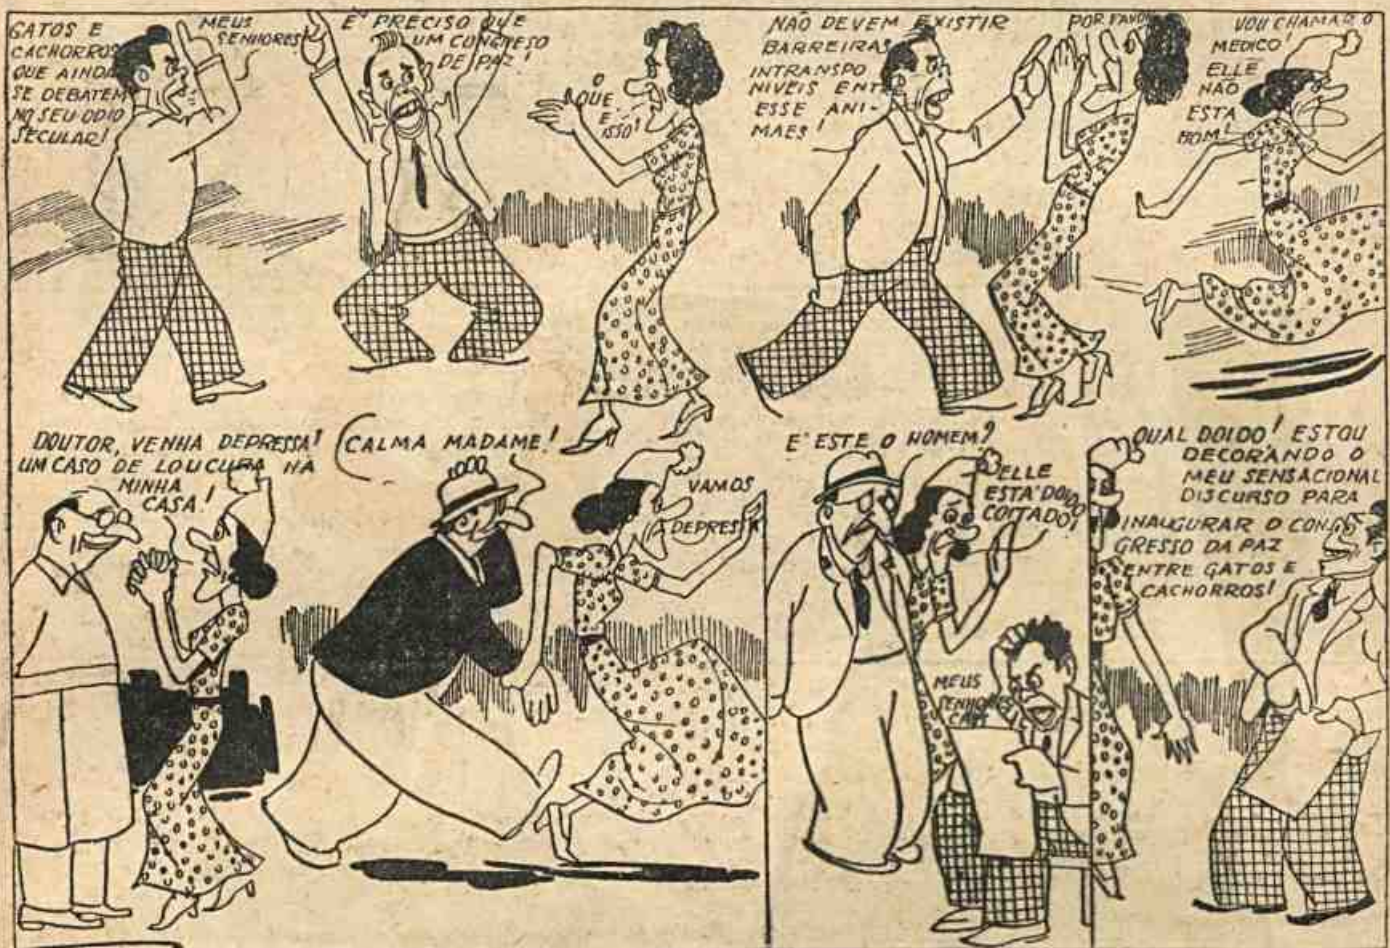 GATOS E
CACHORROS
QUE AINDA
SE DEBATEM
NO SEU ODIO
SECULAR!
MEUS
SENHORES
E' PRECISO QUE
UM CONGRESO
DE PAZ!
O
QUE
E'
ISSO!
NÃO DEVEM EXISTIR
BARREIRAS
INTRANSPO
NIVEIS ENT
ESSE ANI-
MAES!
POR FAVOR
VOU CHAMAR O
MEDICO!
ELLE
NÃO
ESTA
BOM!
DOUTOR, VENHA DEPRESSA!
UM CASO DE LOUCURA NA
MINHA
CASA!
CALMA MADAME!
VAMOS
DEPRESSA
E' ESTE O HOMEM?
ELLE
ESTA' DOIDO
COITADO!
MEUS
SENHORES
QUAL DOIDO! ESTOU
DECORANDO O
MEU SENSACIONAL
DISCURSO PARA
INAUGURAR O CON-
GRESSO DA PAZ
ENTRE GATOS E
CACHORROS!